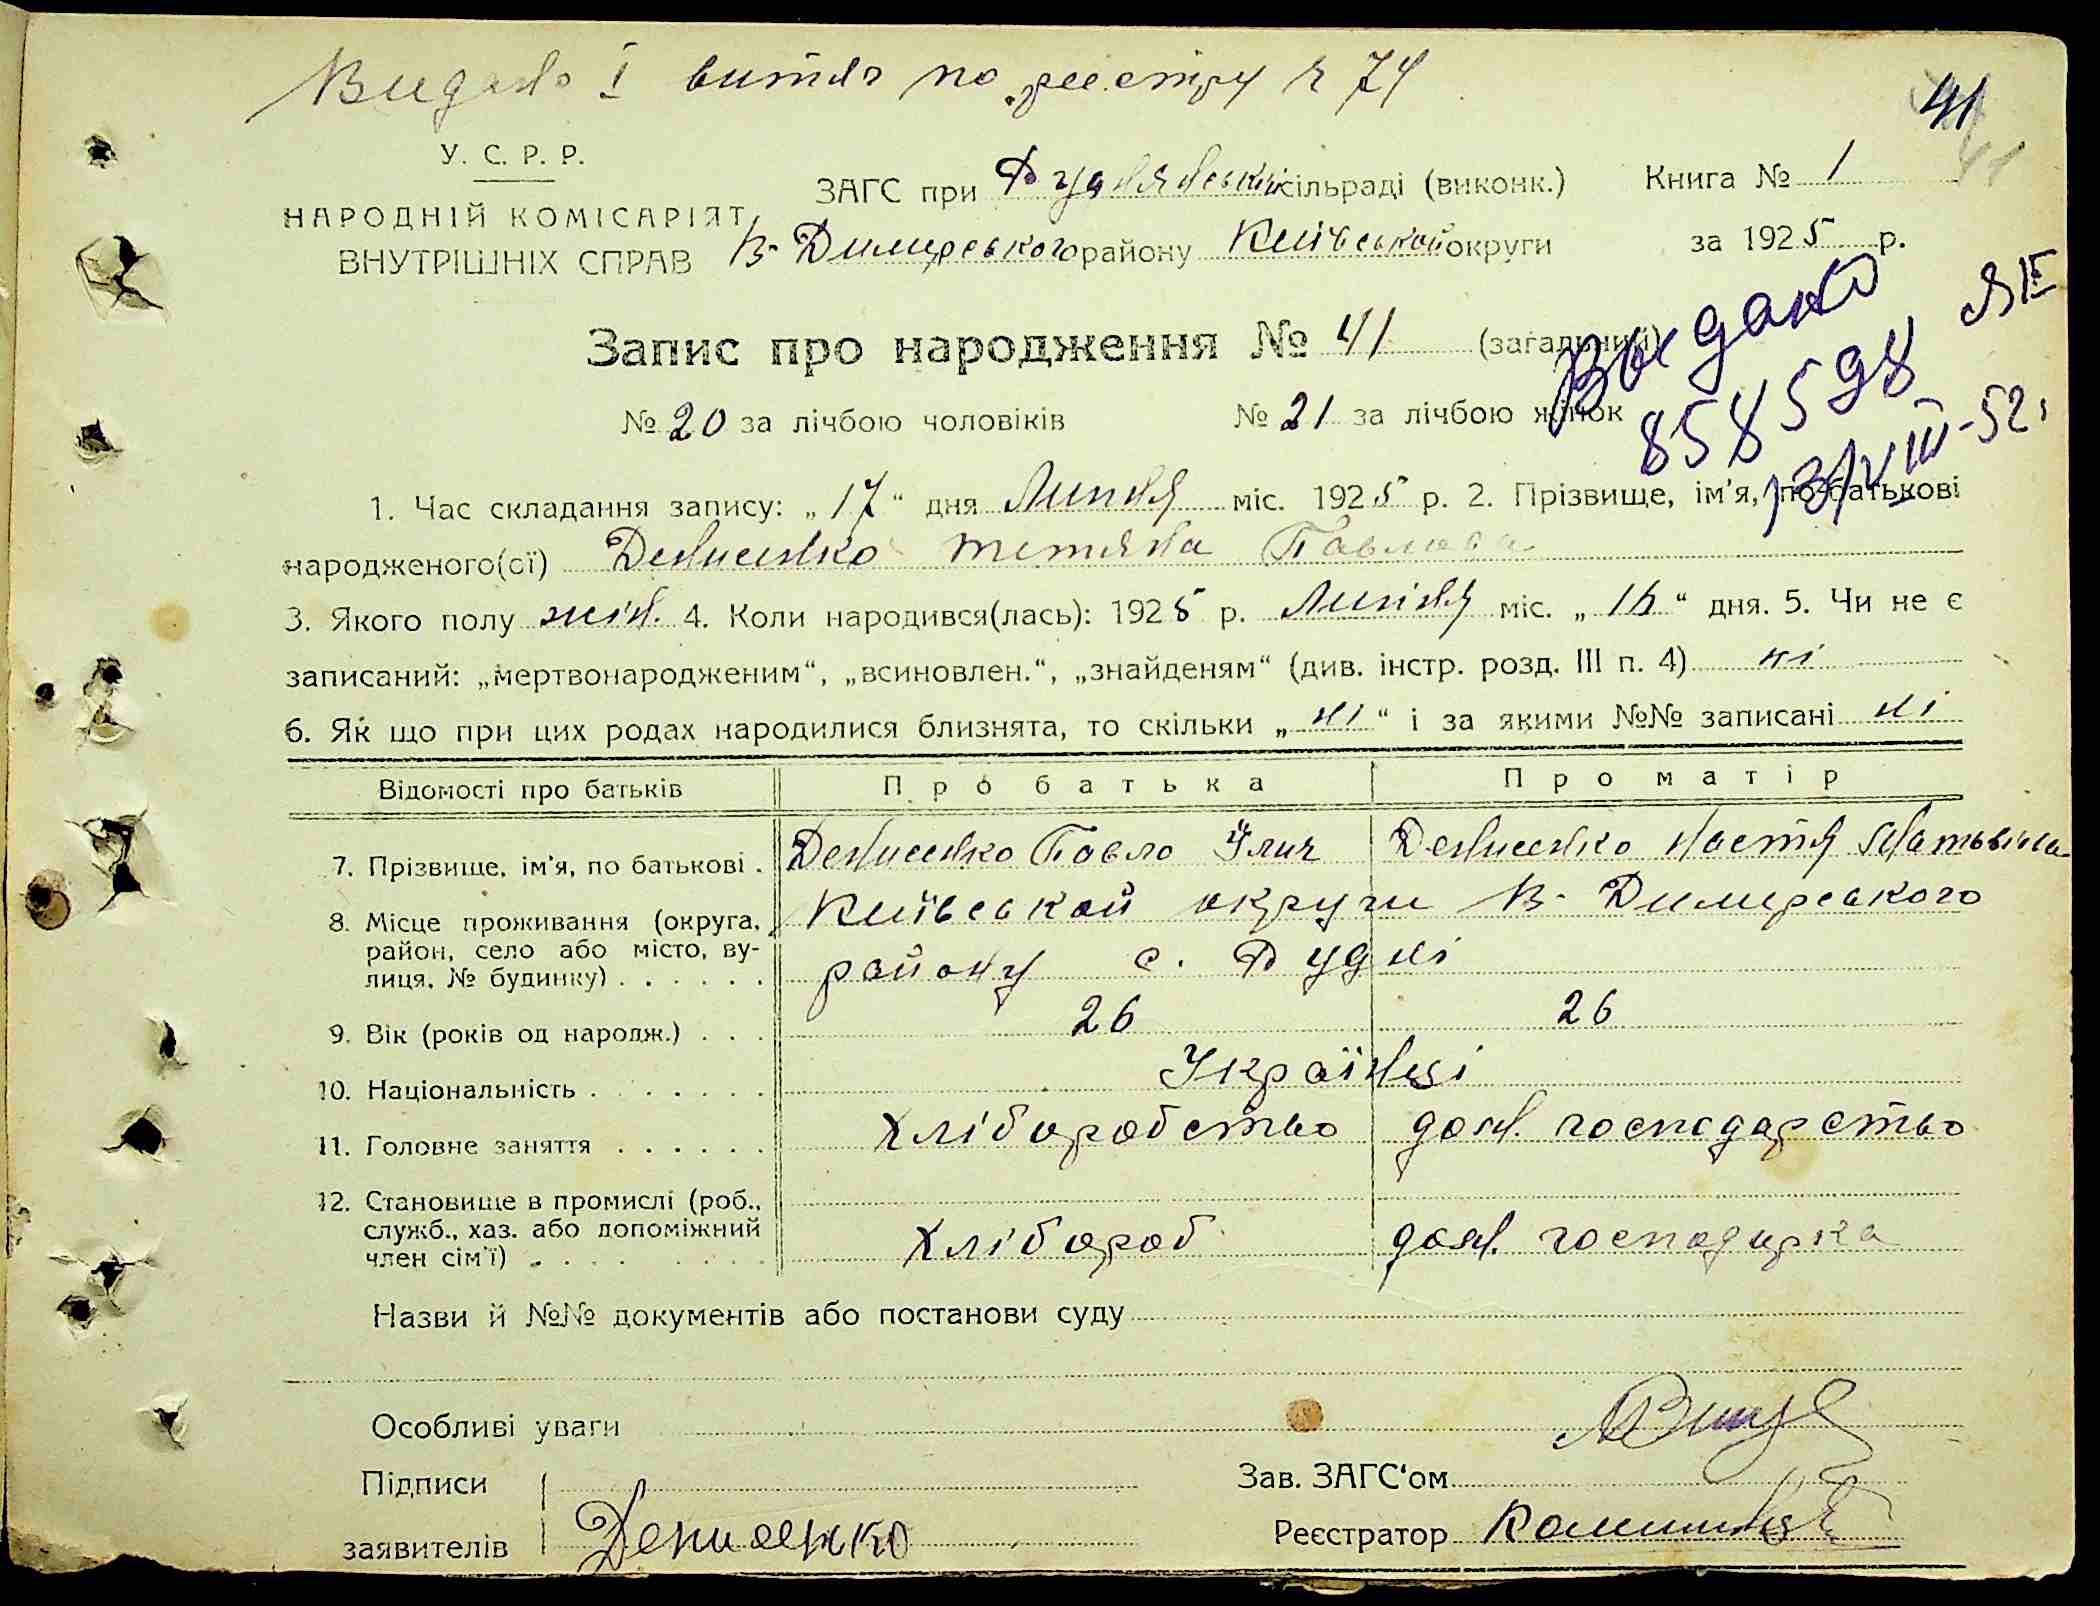 Видано І витяг по реєстру № 74
41
41
У. С. Р. Р.
НАРОДНІЙ КОМІСАРІЯТ
ВНУТРІШНІХ СПРАВ
ЗАГС при Руднянській сільраді (виконк.)
Книга № 1
В-Димерського району Київської округи
за 1925 р.
Запис про народження № 41 (загальний)
№ 20 за лічбою чоловіків № 21 за лічбою жінок
Выдано
858598
13/VIII-52.
1. Час складання запису: „17“ дня Липня міс. 1925 р. 2. Прізвище, ім'я, по-батькові
народженого(ої) Денисенко Тетяна Павлова
3. Якого полу жін. 4. Коли народився(лась): 1925 р. Липня міс. „16“ дня. 5. Чи не є
записаний: „мертвонародженим“, „всиновлен.“, „знайденям“ (див. інстр. розд. III п. 4) ні
6. Як що при цих родах народилися близнята, то скільки „ні“ і за якими №№ записані ні
Відомості про батьків Про батька Про матір
7. Прізвище, ім'я, по батькові . Денисенко Павло Ілич Денисенко Настя Матвіївна
8. Місце проживання (округа, Київськой округи В-Димерського
район, село або місто, ву-
лиця, № будинку) . . . . . . району с. Рудні
9. Вік (років од народж.) . . . 26 26
10. Національність . . . . . . . Українці
11. Головне заняття . . . . . . Хліборобство дом. господарство
12. Становище в промислі (роб.,
служб., хаз. або допоміжний
член сім'ї) . . . . . . . . Хлібороб дом. господарка
Назви й №№ документів або постанови суду
Особливі уваги
Підписи
Зав. ЗАГС'ом
заявителів Денисенко
Реєстратор